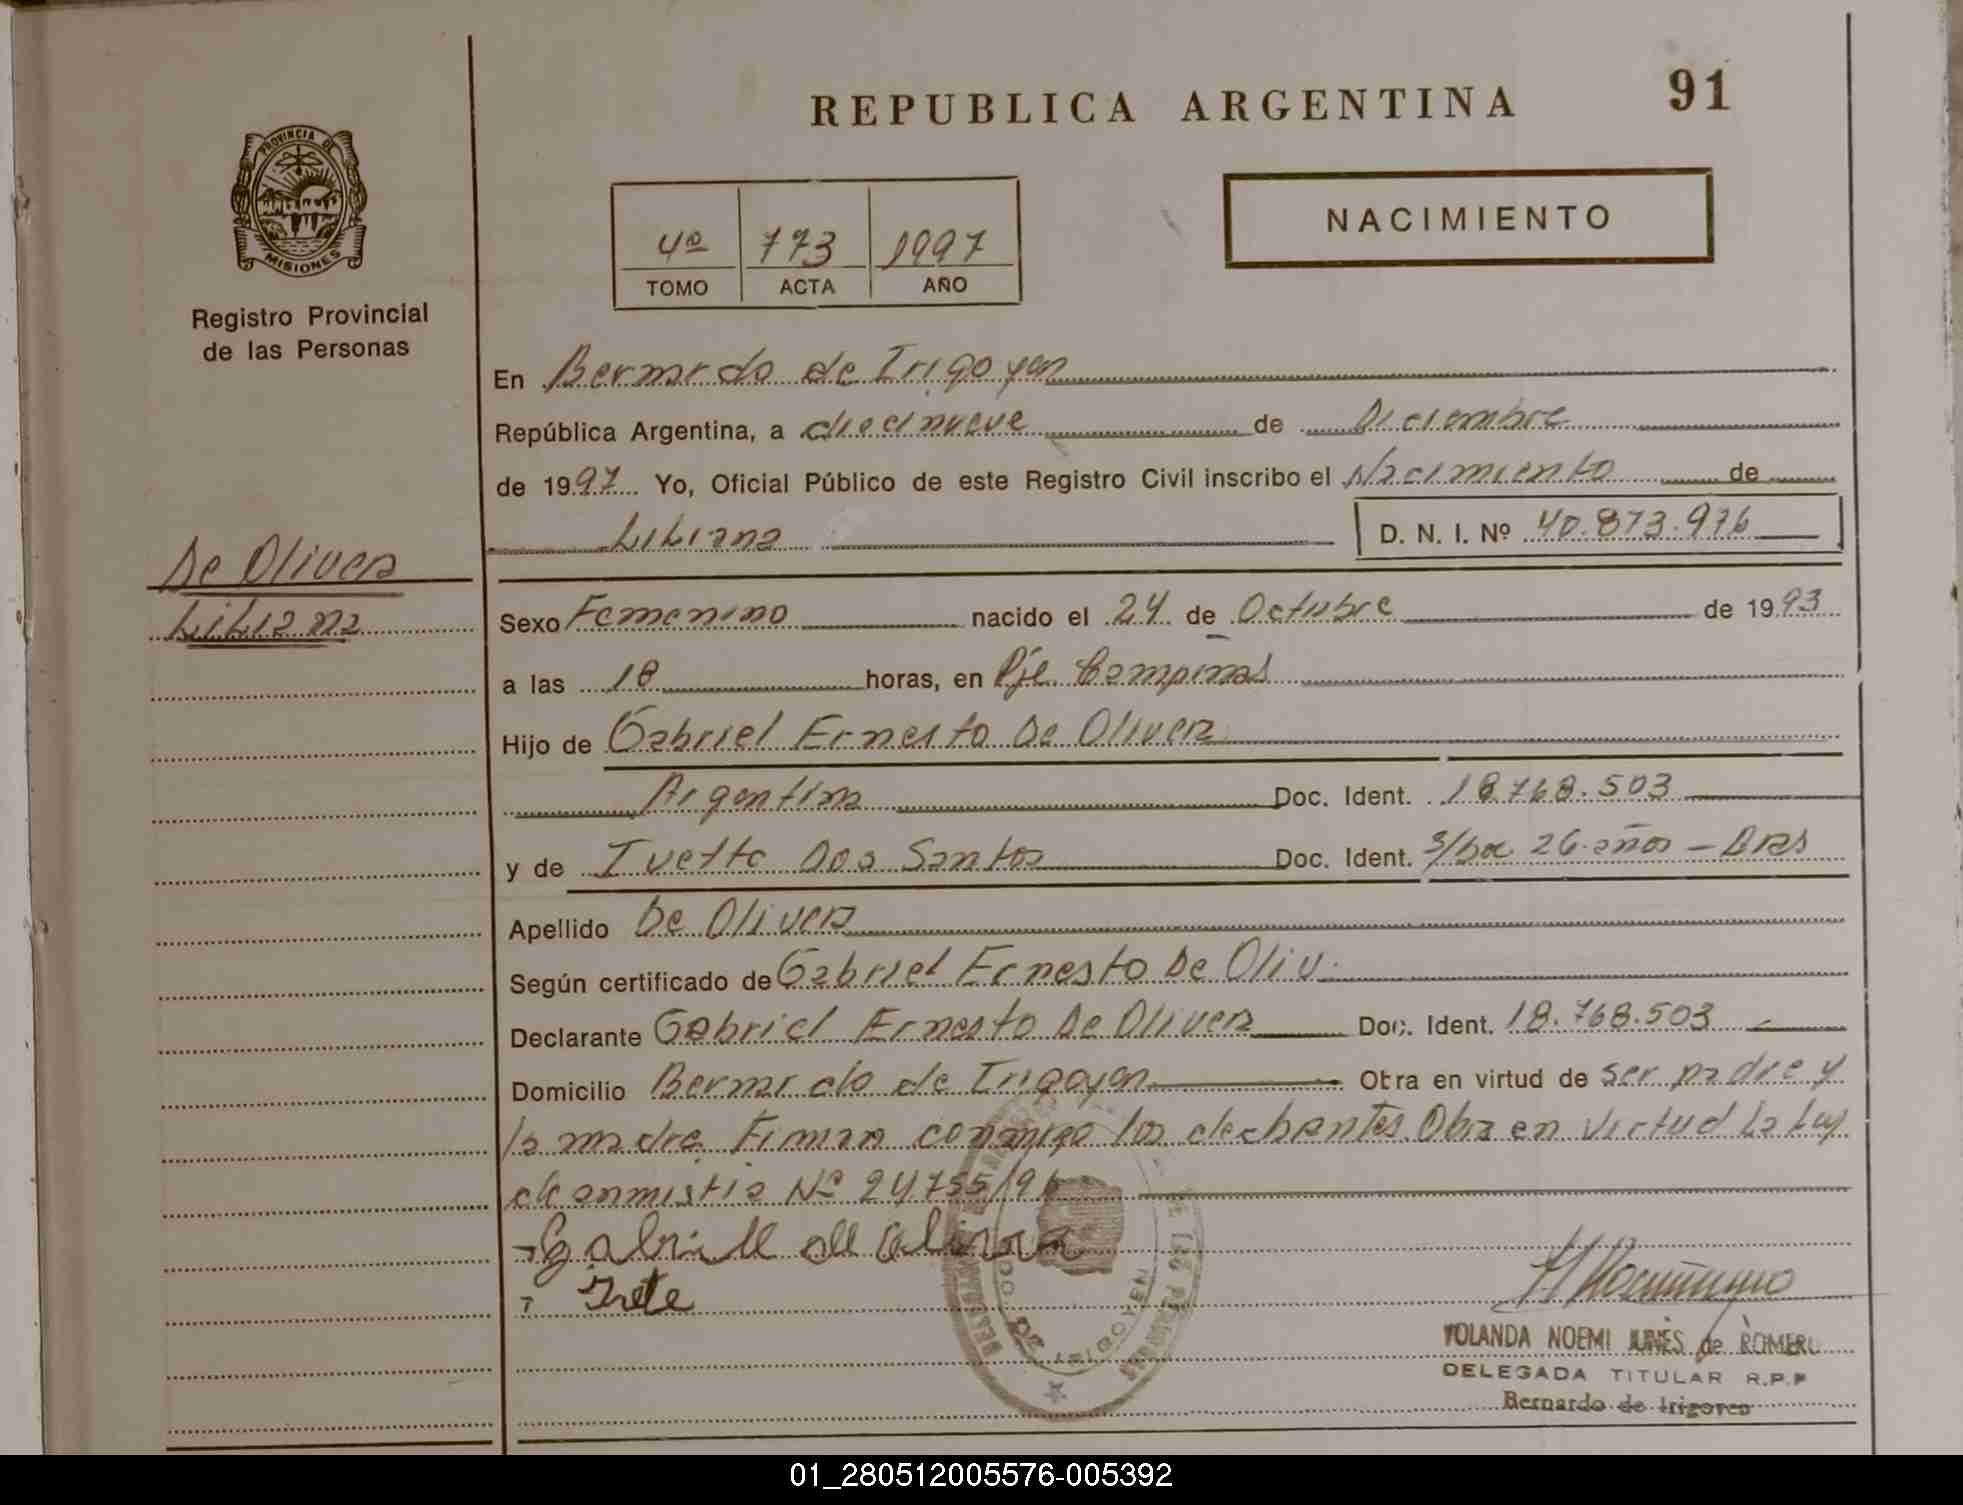 REPUBLICA ARGENTINA
91
PROVINCIA DE
MISIONES
Registro Provincial
de las Personas
4º 773 1997
TOMO ACTA AÑO
NACIMIENTO
En Bernardo de Irigoyen
República Argentina, a diecinueve de Diciembre
de 1997 Yo, Oficial Público de este Registro Civil inscribo el Nacimiento de
Liliana D. N. I. Nº 40.873.976
De Olivera
Liliana
Sexo Femenino nacido el 24 de Octubre de 1993
a las 18 horas, en Pje Campinas
Hijo de Gabriel Ernesto De Olivera
Argentina Doc. Ident. 18.768.503
y de Ivette Dos Santos Doc. Ident. 26 años - Bras
Apellido De Olivera
Según certificado de Gabriel Ernesto De Oliv.
Declarante Gabriel Ernesto De Olivera Doc. Ident. 18.768.503
Domicilio Bernardo de Irigoyen Obra en virtud de ser padre y
la madre. Firman conmigo los declarantes. Obra en virtud La Ley
de anmistia Nº 24755/96
Gabriell de Olivera
YOLANDA NOEMI de ROMERO
DELEGADA TITULAR R.P.P
Bernardo de Irigoyen
01_280512005576-005392